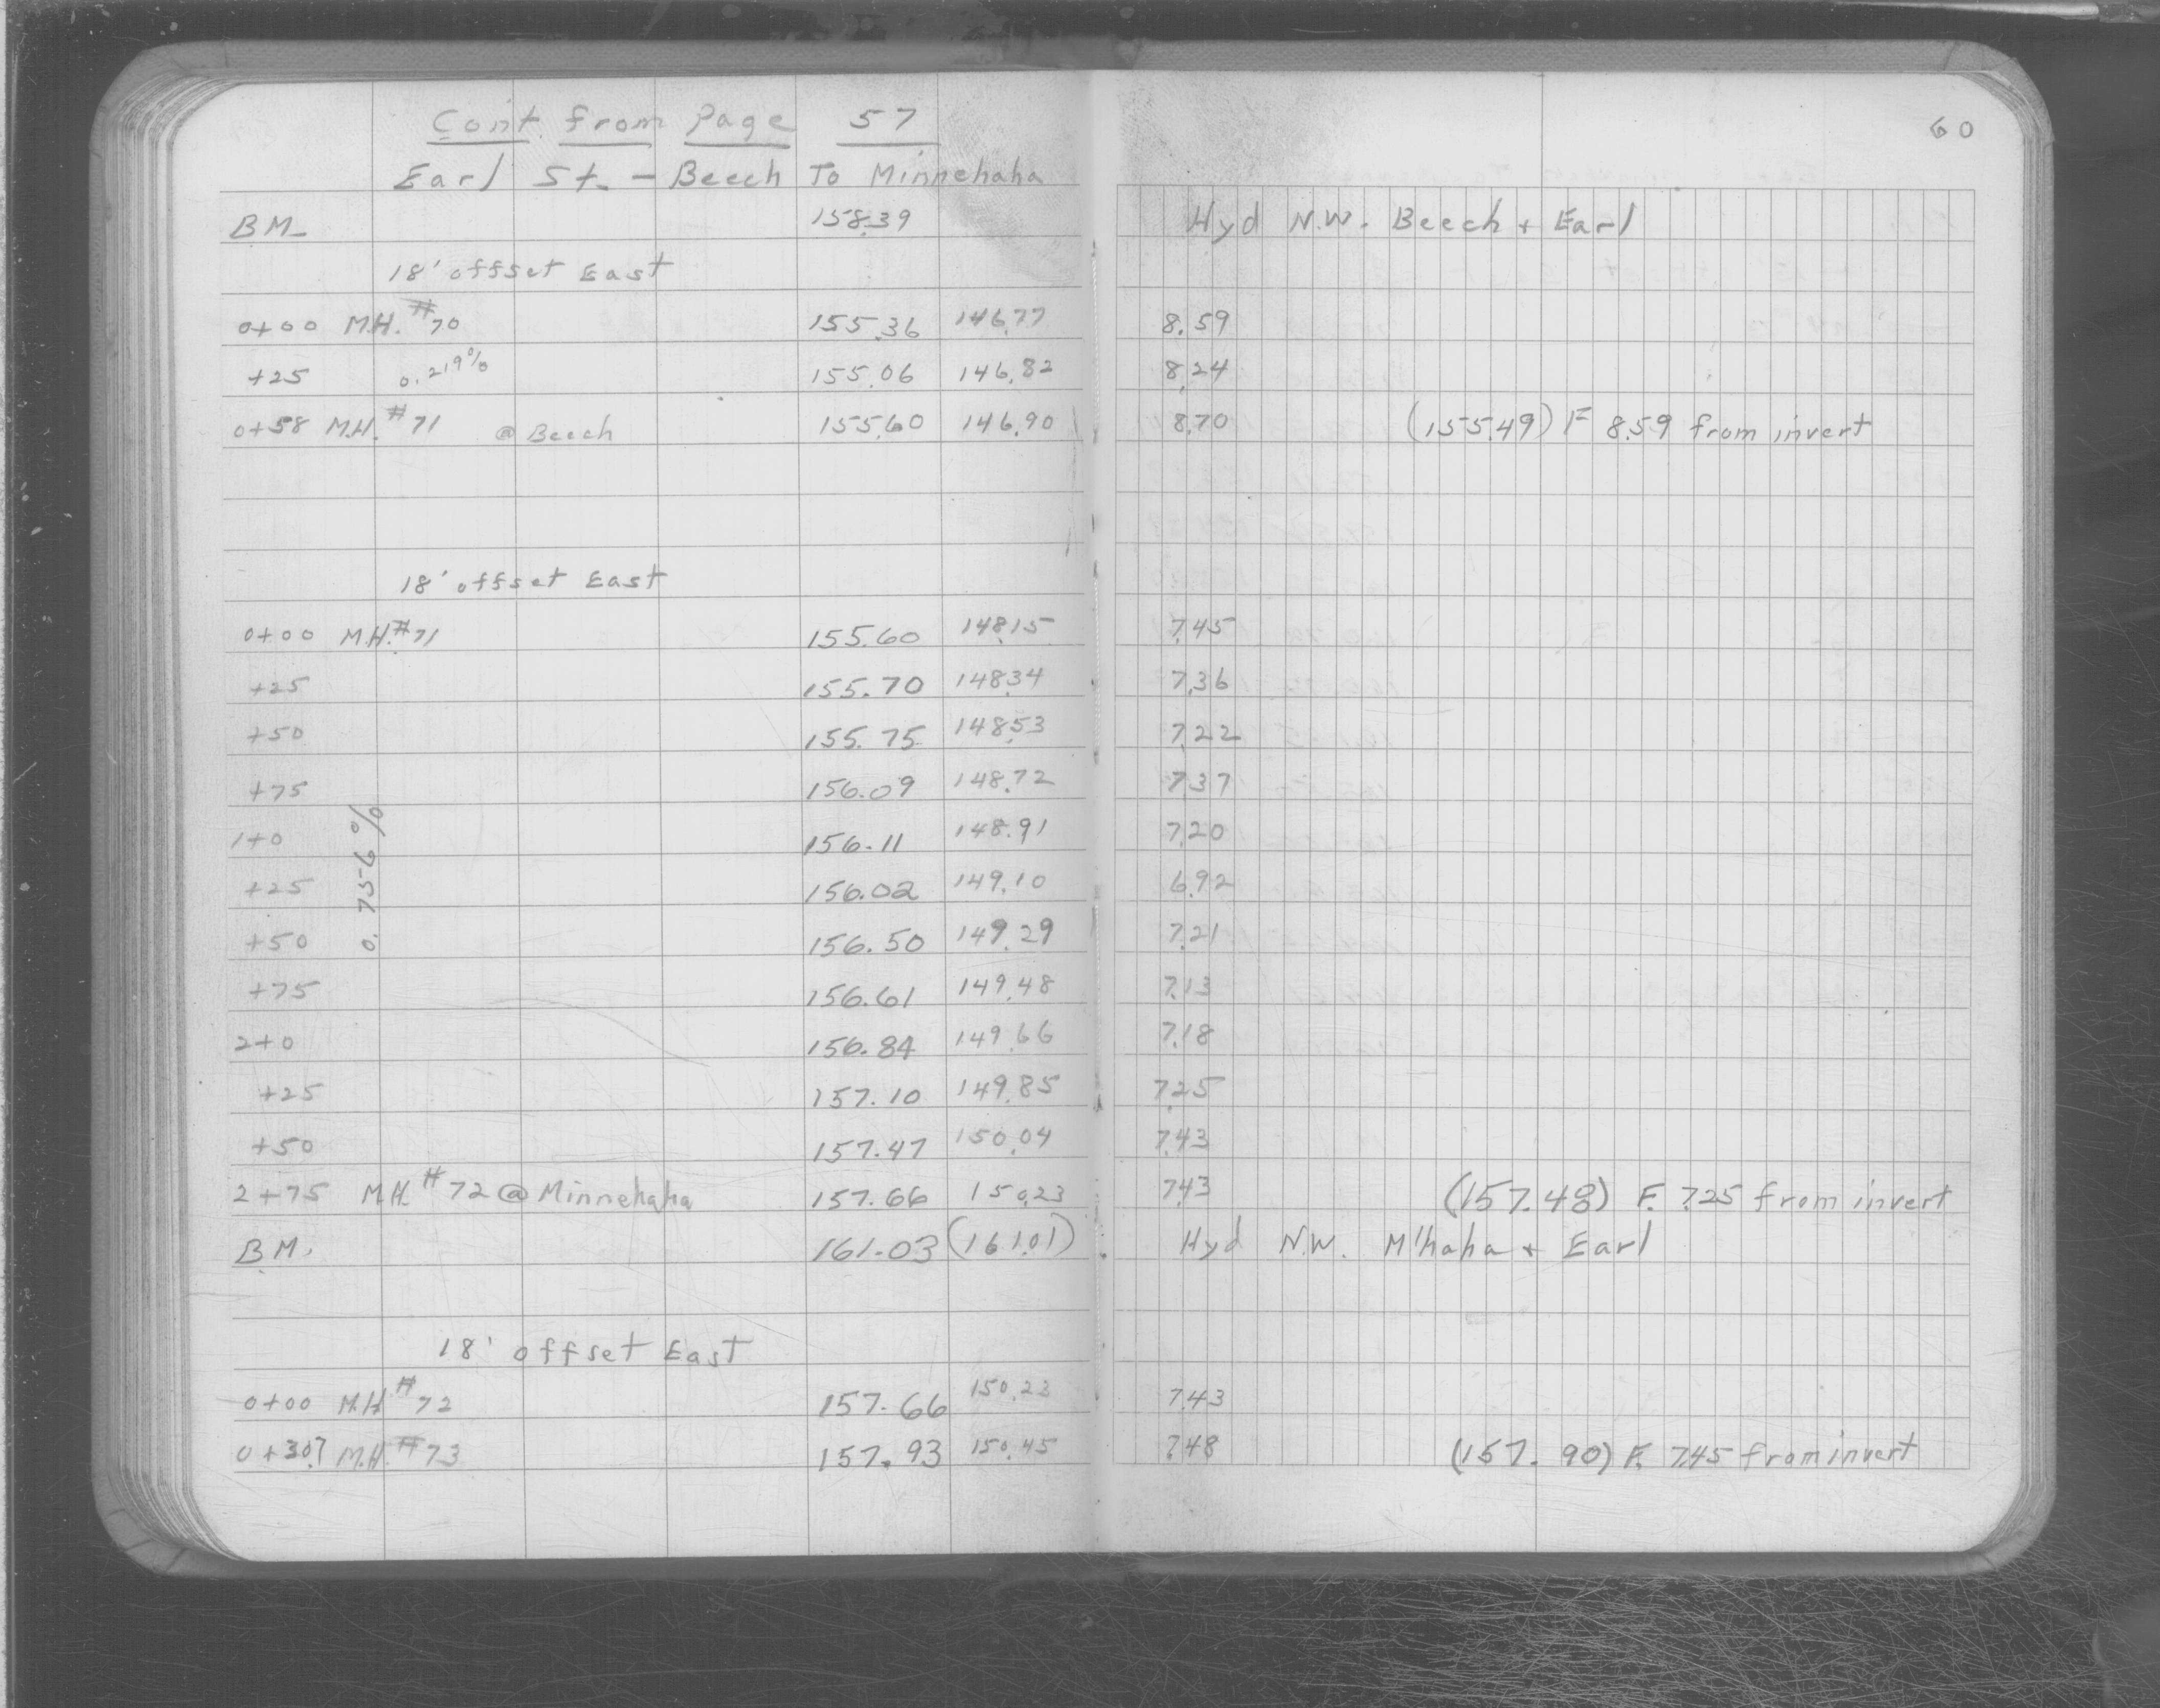 Con't. from Page 57
60
Earl St. - Beech To Minnehaha
BM. 158.39 Hyd N.W. Beech + Earl
18' offset East
0+00 M.H. #70 155.36 146.77 8.59
+25 0.219% 155.06 146.82 8.24
0+58 M.H. #71 @ Beech 155.60 146.90 8.70 (155.49) F 8.59 from invert
18' offset East
0+00 M.H. #71 155.60 148.15 7.45
+25 155.70 148.34 7.36
+50 155.75 148.53 7.22
+75 156.09 148.72 7.37
1+0 156.11 148.91 7.20
0.756%
+25 156.02 149.10 6.92
+50 156.50 149.29 7.21
+75 156.61 149.48 7.13
2+0 156.84 149.66 7.18
+25 157.10 149.85 7.25
+50 157.47 150.04 7.43
2+75 M.H. #72 @ Minnehaha 157.66 150.23 7.43 (157.48) F. 7.25 from invert
BM. 161.03 (161.01) Hyd N.W. M'haha + Earl
18' offset East
0+00 M.H. #72 157.66 150.23 7.43
0+30.7 M.H. #73 157.93 150.45 7.48 (157.90) F. 7.45 from invert